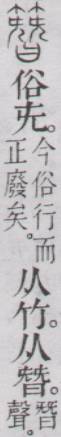 簪俗兂。今俗行而正廢矣。从竹。从朁。朁聲。